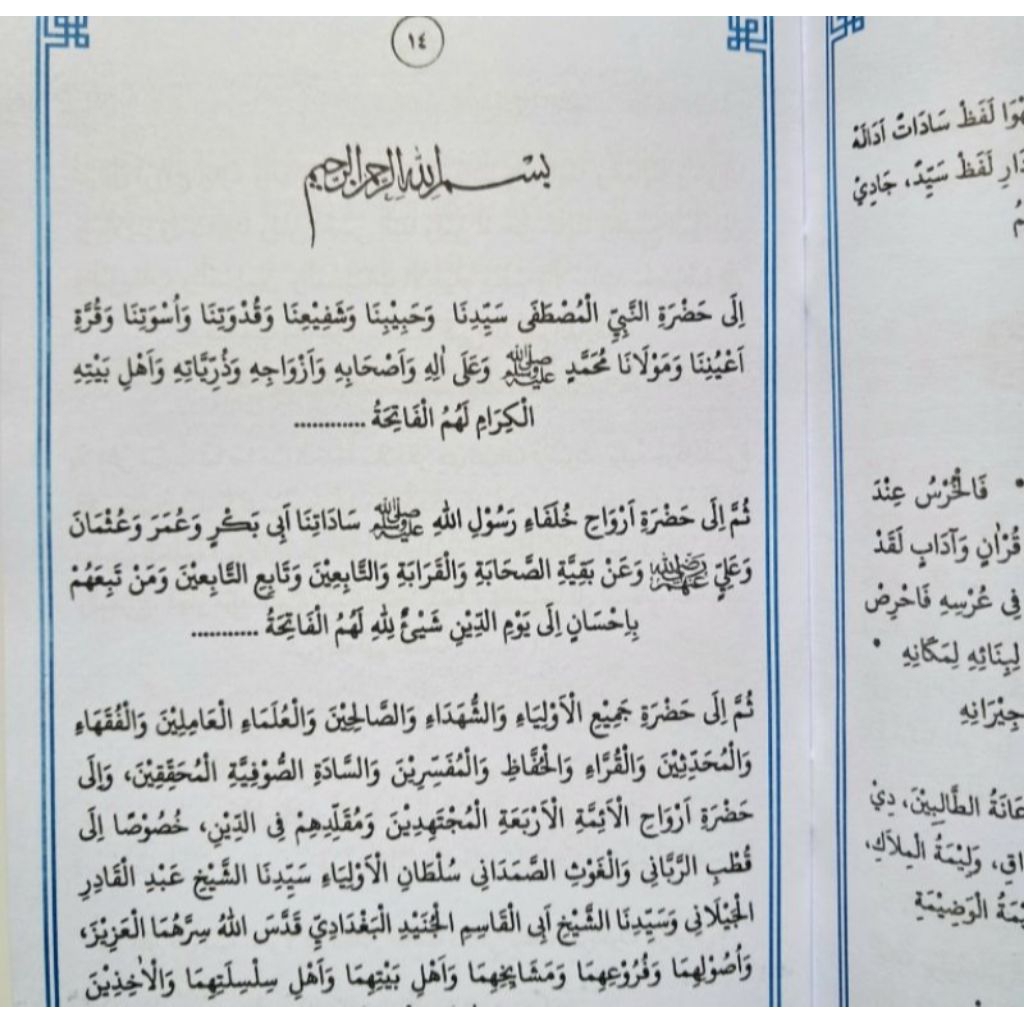 ١٤
بسم الله الرحمن الرحيم
اِلَى حَضْرَةِ النَّبِيِّ الْمُصْطَفَى سَيِّدِنَا وَحَبِيْبِنَا وَشَفِيْعِنَا وَقُدْوَتِنَا وَاُسْوَتِنَا وَقُرَّةِ
اَعْيُنِنَا وَمَوْلَانَا مُحَمَّدٍ ﷺ وَعَلَى اٰلِهِ وَاَصْحَابِهِ وَاَزْوَاجِهِ وَذُرِّيَّاتِهِ وَاَهْلِ بَيْتِهِ
الْكِرَامِ لَهُمُ الْفَاتِحَةُ ............
ثُمَّ اِلَى حَضْرَةِ اَرْوَاحِ خُلَفَاءِ رَسُوْلِ اللهِ ﷺ سَادَاتِنَا اَبِى بَكْرٍ وَعُمَرَ وَعُثْمَانَ
وَعَلِيٍّ رضي الله عنهم وَعَنْ بَقِيَّةِ الصَّحَابَةِ وَالْقَرَابَةِ وَالتَّابِعِيْنَ وَتَابِعِ التَّابِعِيْنَ وَمَنْ تَبِعَهُمْ
بِاِحْسَانٍ اِلَى يَوْمِ الدِّيْنِ شَيْئٌ لِلّٰهِ لَهُمُ الْفَاتِحَةُ ...........
ثُمَّ اِلَى حَضْرَةِ جَمِيْعِ الْاَوْلِيَاءِ وَالشُّهَدَاءِ وَالصَّالِحِيْنَ وَالْعُلَمَاءِ الْعَامِلِيْنَ وَالْفُقَهَاءِ
وَالْمُحَدِّثِيْنَ وَالْقُرَّاءِ وَالْحُفَّاظِ وَالْمُفَسِّرِيْنَ وَالسَّادَةِ الصُّوْفِيَّةِ الْمُحَقِّقِيْنَ، وَاِلَى
حَضْرَةِ اَرْوَاحِ الْاَئِمَّةِ الْاَرْبَعَةِ الْمُجْتَهِدِيْنَ وَمُقَلِّدِهِمْ فِى الدِّيْنِ، خُصُوْصًا اِلَى
قُطْبِ الرَّبَّانِى وَالْغَوْثِ الصَّمَدَانِى سُلْطَانِ الْاَوْلِيَاءِ سَيِّدِنَا الشَّيْخِ عَبْدِ الْقَادِرِ
الْجَيْلَانِى وَسَيِّدِنَا الشَّيْخِ اَبِى الْقَاسِمِ الْجُنَيْدِ الْبَغْدَادِيِّ قَدَّسَ اللهُ سِرَّهُمَا الْعَزِيْزَ،
وَاُصُوْلِهِمَا وَفُرُوْعِهِمَا وَمَشَايِخِهِمَا وَاَهْلِ بَيْتِهِمَا وَاَهْلِ سِلْسِلَتِهِمَا وَالْاٰخِذِيْنَ
لَفَظْ سَادَاتْ اَدَالَهْ
لَفَظْ سَيِّدْ، جَادِيْ
فَالْحُرْسُ عِنْدَ
قُرْاٰنٍ وَآدَابٍ لَقَدْ
فِى عُرْسِهِ فَاحْرِصْ
لِبِنَائِهِ لِمَكَانِهِ •
جِيْرَانِهِ
الطَّالِبِيْنَ، دِيْ
وَلِيْمَةُ الْمِلَاكِ،
الْوَضِيْمَةِ